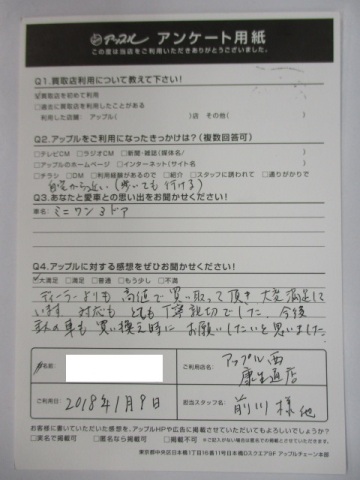 アップル アンケート用紙
この度は当店をご利用いただきありがとうございました。
Q1.買取店利用について教えて下さい!
☑買取店を初めて利用
□過去に買取店を利用したことがある
利用した店舗: アップル( )店 その他( )
Q2.アップルをご利用になったきっかけは?(複数回答可)
□テレビCM □ラジオCM □新聞・雑誌(媒体名/ )
□アップルのホームページ □インターネット(サイト名 )
□チラシ □DM □利用経験があるので □紹介 □スタッフに誘われて □通りがかりで
自宅から近い(歩いても行ける)
Q3.あなたと愛車との思い出をお聞かせください!
車名:ミニワン3ドア
Q4.アップルに対する感想をぜひお聞かせください!
☑大満足 □満足 □普通 □もう少し □不満
ディーラーよりも高値で買い取って頂き大変満足して
います 対応もとても丁寧親切でした。今後
車も買い換え時にお願いしたいと思いました。
お名前:
ご利用店名: アップル西
康生通店
ご利用日: 2018年1月9日
担当スタッフ名: 前川様他
お客様に書いていただいた感想を、アップルHPや広告に掲載させていただいてもよろしいですか?
□実名で掲載可 □匿名なら掲載可 □掲載不可
東京都中央区日本橋1丁目16番11号日本橋DスクエアSF アップルチェーン本部